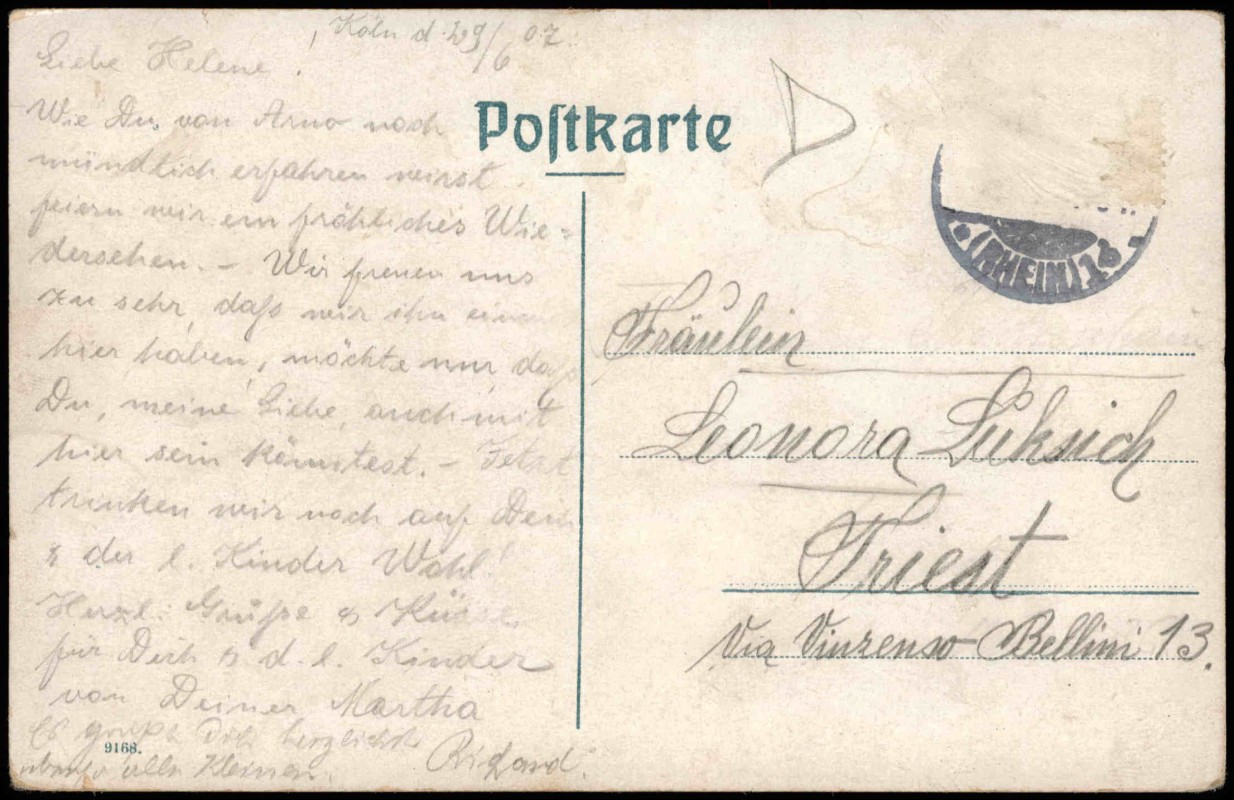 Köln d. 29/6 07.
Liebe Helene.
Wie Du, von Arno noch
mündlich erfahren wirst
feiern wir ein fröhliches Wie=
dersehen. – Wir freuen uns
zu sehr, daß wir ihn
hier haben, möchte nur, daß
Du, meine Liebe, auch mit
hier sein könntest. – Jetzt
trinken wir noch auf Dein
& der l. Kinder Wohl!
Herzl. Grüße & Küsse
für Dich & d. l. Kinder
von Deiner Martha
Es grüßt Dich herzlichst
ebenso alle Kleinen.
Richard.
9168.
Postkarte
(RHEIN) 1
Fräulein
Leonora Luksich
Triest
Via Vinzenso Bellini 13.